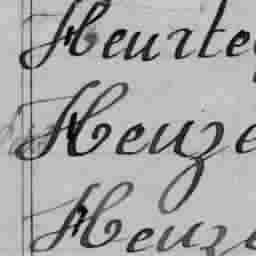 Heurte
Heuze
Heuz